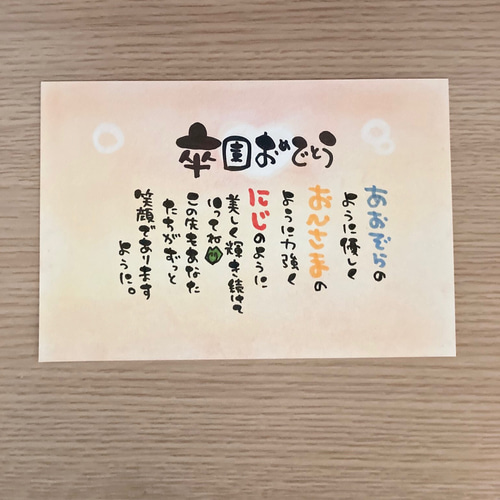 卒園おめでとう
あおぞらの
ように優しく
おひさまの
ように力強く
にじのように
美しく輝き続けて
いってね
この先もあなた
たちがずっと
笑顔であります
ように。